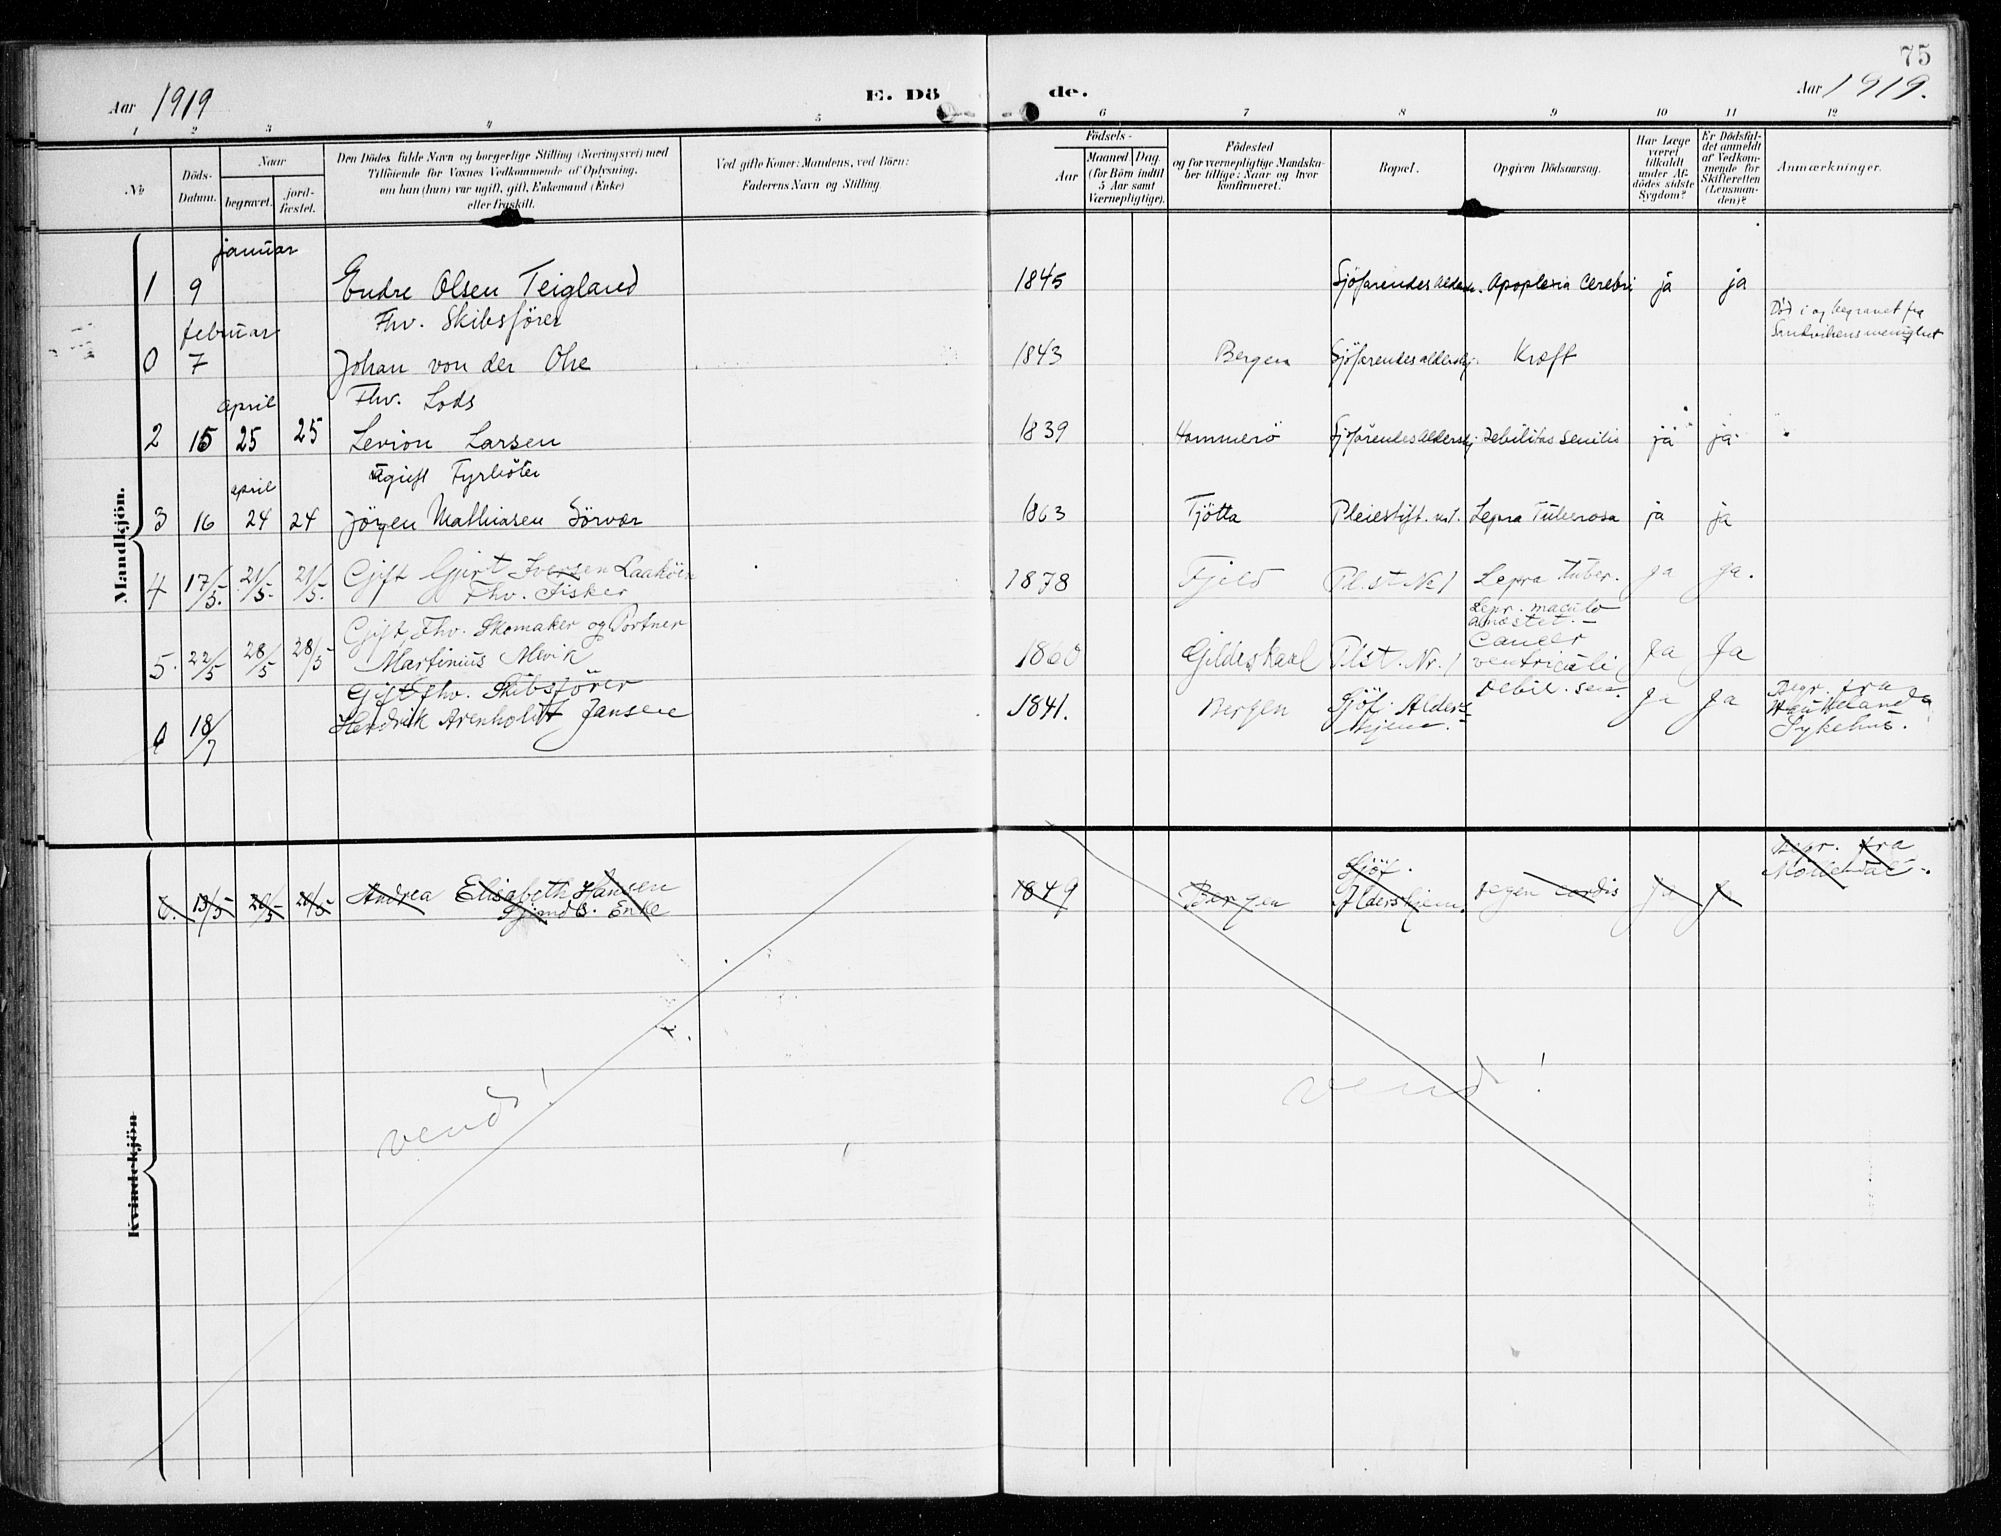 75
Aar 1919 E. Dö de. Aar 1919.
1 2 3 4 5 6 7 8 9 10 11 12
No
Döds-Datum.
Naar
begravet.
jord-fæstet.
Den Dödes fulde Navn og borgerlige Stilling (Næringsvei) med
Tilföiende for Voxnes Vedkommende af Oplysning,
om han (hun) var ugift, gift, Enkemand (Enke)
eller fraskilt.
Ved gifte Koner: Mandens, ved Börn:
Faderens Navn og Stilling.
Födsels-
Aar
Maaned Dag.
(for Börn indtil
5 Aar samt
Værnepligtige).
Födested
og for værnepligtige Mandskaber tillige: Naar og hvor
konfirmeret.
Bopæl.
Opgiven Dödsaarsag.
Har Læge
været
tilkaldt
under Af-
dödes sidste
Sygdom?
Er Dödsfal-
det anmeldt
af Vedkom-
mende for
Skifteretten
(Lensman-
den)?
Anmærkninger.
Mandkjön.
januar
1 9 Endre Olsen Teigland 1845 Sjöfarendes Alders. Apoplexia Cerebri ja ja
Fhv. Skibsförer
februar
Död i og begravet fra
Sandvikens menighet
0 7 Johan von der Ohe 1843 Bergen Sjöfarendes aldershj. Kræft
Fhv. Lods
april
2 15 25 25 Levion Larsen 1839 Hammerö Sjöfarendes Aldershj. Debilitas senilis ja ja
ugift Fyrböter
april
3 16 24 24 Jörgen Mathiasen Sörvær 1863 Tjötta Pleiestift. nr 1. Lepra Tuberosa ja ja
4 17/5. 21/5. 21/5. Gift Gjert Iversen 1878 Fjeld Pl. st No 1 Lepra tuber. Ja Ja.
Fhv. Fisker
Gift Fhv. Skomaker og Portner
Lepr. maculo
anæstet. –
5. 22/5 28/5 28/5 Martinius Mevik 1860 Gildeskaal Plst. Nr. 1 Cancer
ventriculi Ja Ja
Gift fhv. Skibsförer
0 18/7 Hendrik Arenholdt Jansen 1841. Bergen Sjöf. Alders
hjem. Debil. sen. Ja Ja Begr. fra
Haukeland
Sykehus.
Kvindekjön
0. 13/5 20/5 20/5 Andrea Elisabeth Hansen 1849 Bergen Sjöf.
Aldershjem. Degen cordis Ja Ja Begr. fra
Möllendal.
Enke
vend! vend!